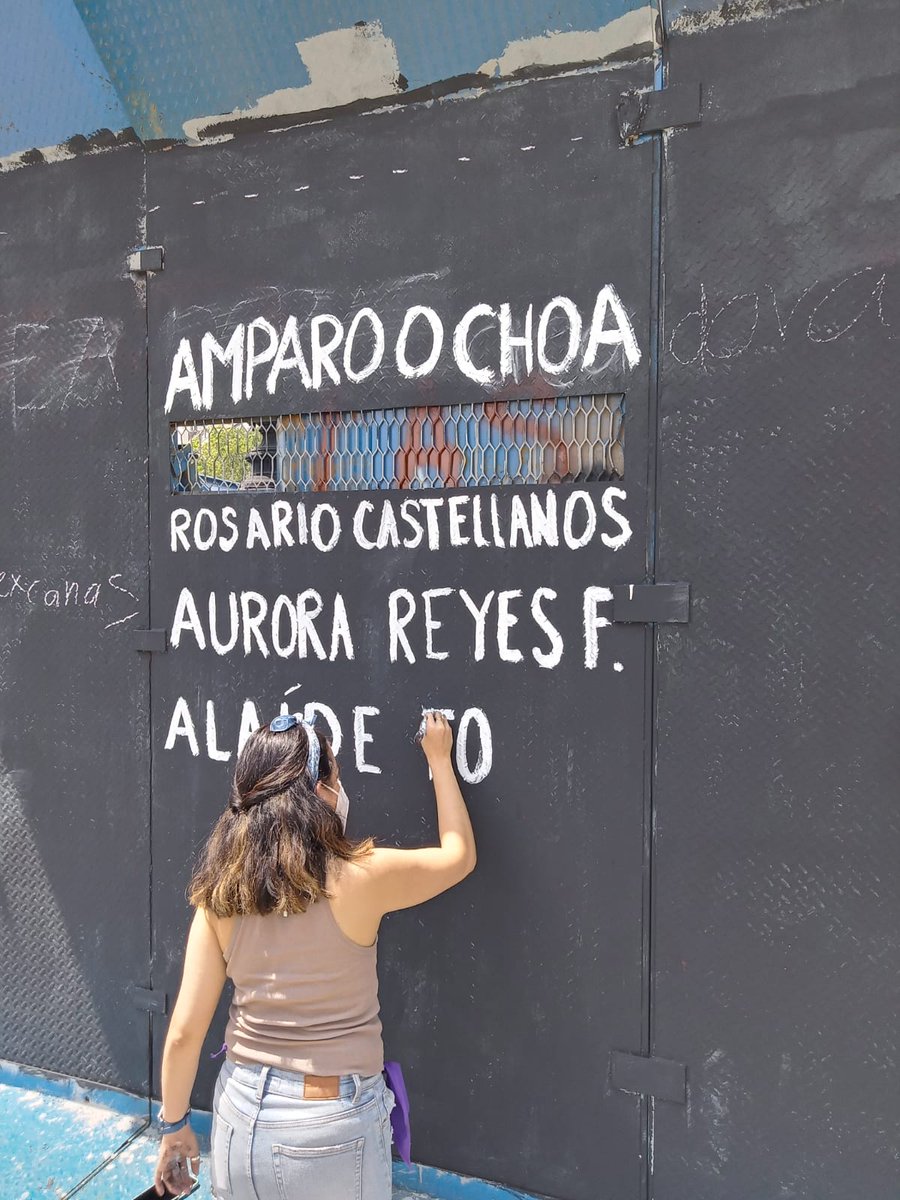 AMPARO OCHOA
ROSARIO CASTELLANOS
AURORA REYES F.
ALAÍDE FO